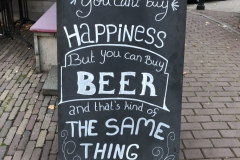 You can't buy
HAPPINESS
But you can Buy
BEER
and that's kind of
THE SAME
THING